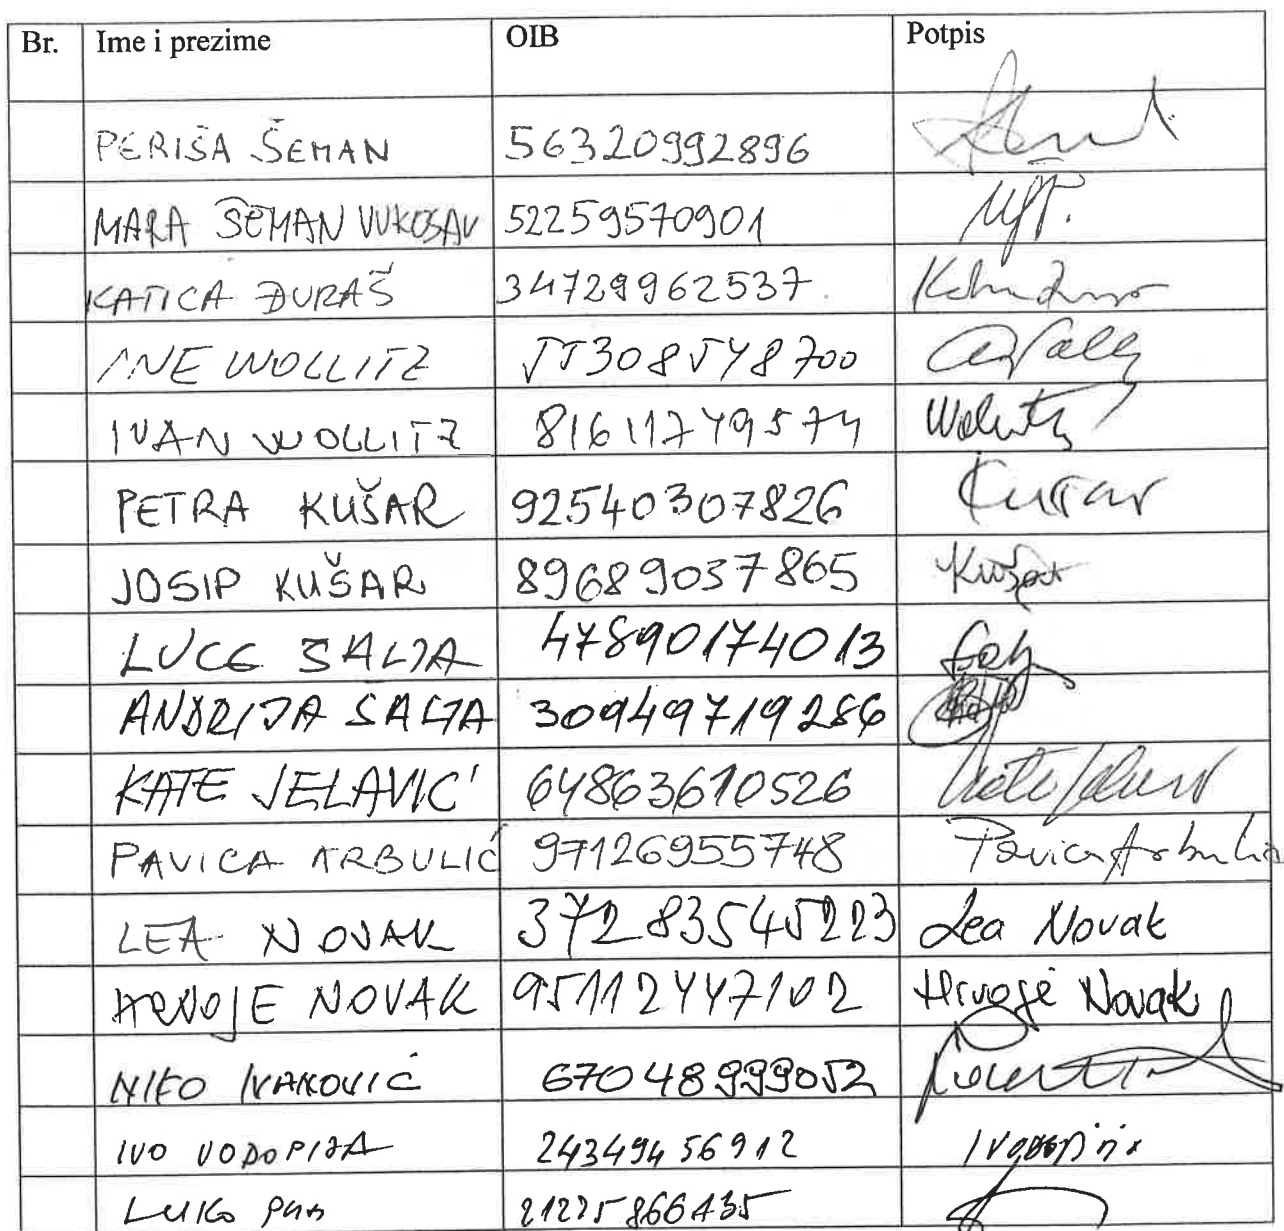 Br. Ime i prezime OIB Potpis
PERIŠA ŠEMAN 56320992896
MARA ŠEMAN VUKOSAV 52259570901
KATICA ĐURAŠ 34729962537
ANE WOLLITZ 55308548700
IVAN WOLLITZ 81611749574 Wolitz
PETRA KUŠAR 92540307826 Kušar
JOSIP KUŠAR 89689037865 Kušar
LUCE SALJA 47890174013
ANDRIJA SALJA 30949719286
KATE JELAVIĆ 64863610526
PAVICA ARBULIĆ 97126955748 Pavica Arbulić
LEA NOVAK 37283545223 Lea Novak
HRVOJE NOVAK 95112447102 Hrvoje Novak
NIKO IVANKOVIĆ 67048999052
IVO VODOPIJA 24349456912
LUKO 21225866435